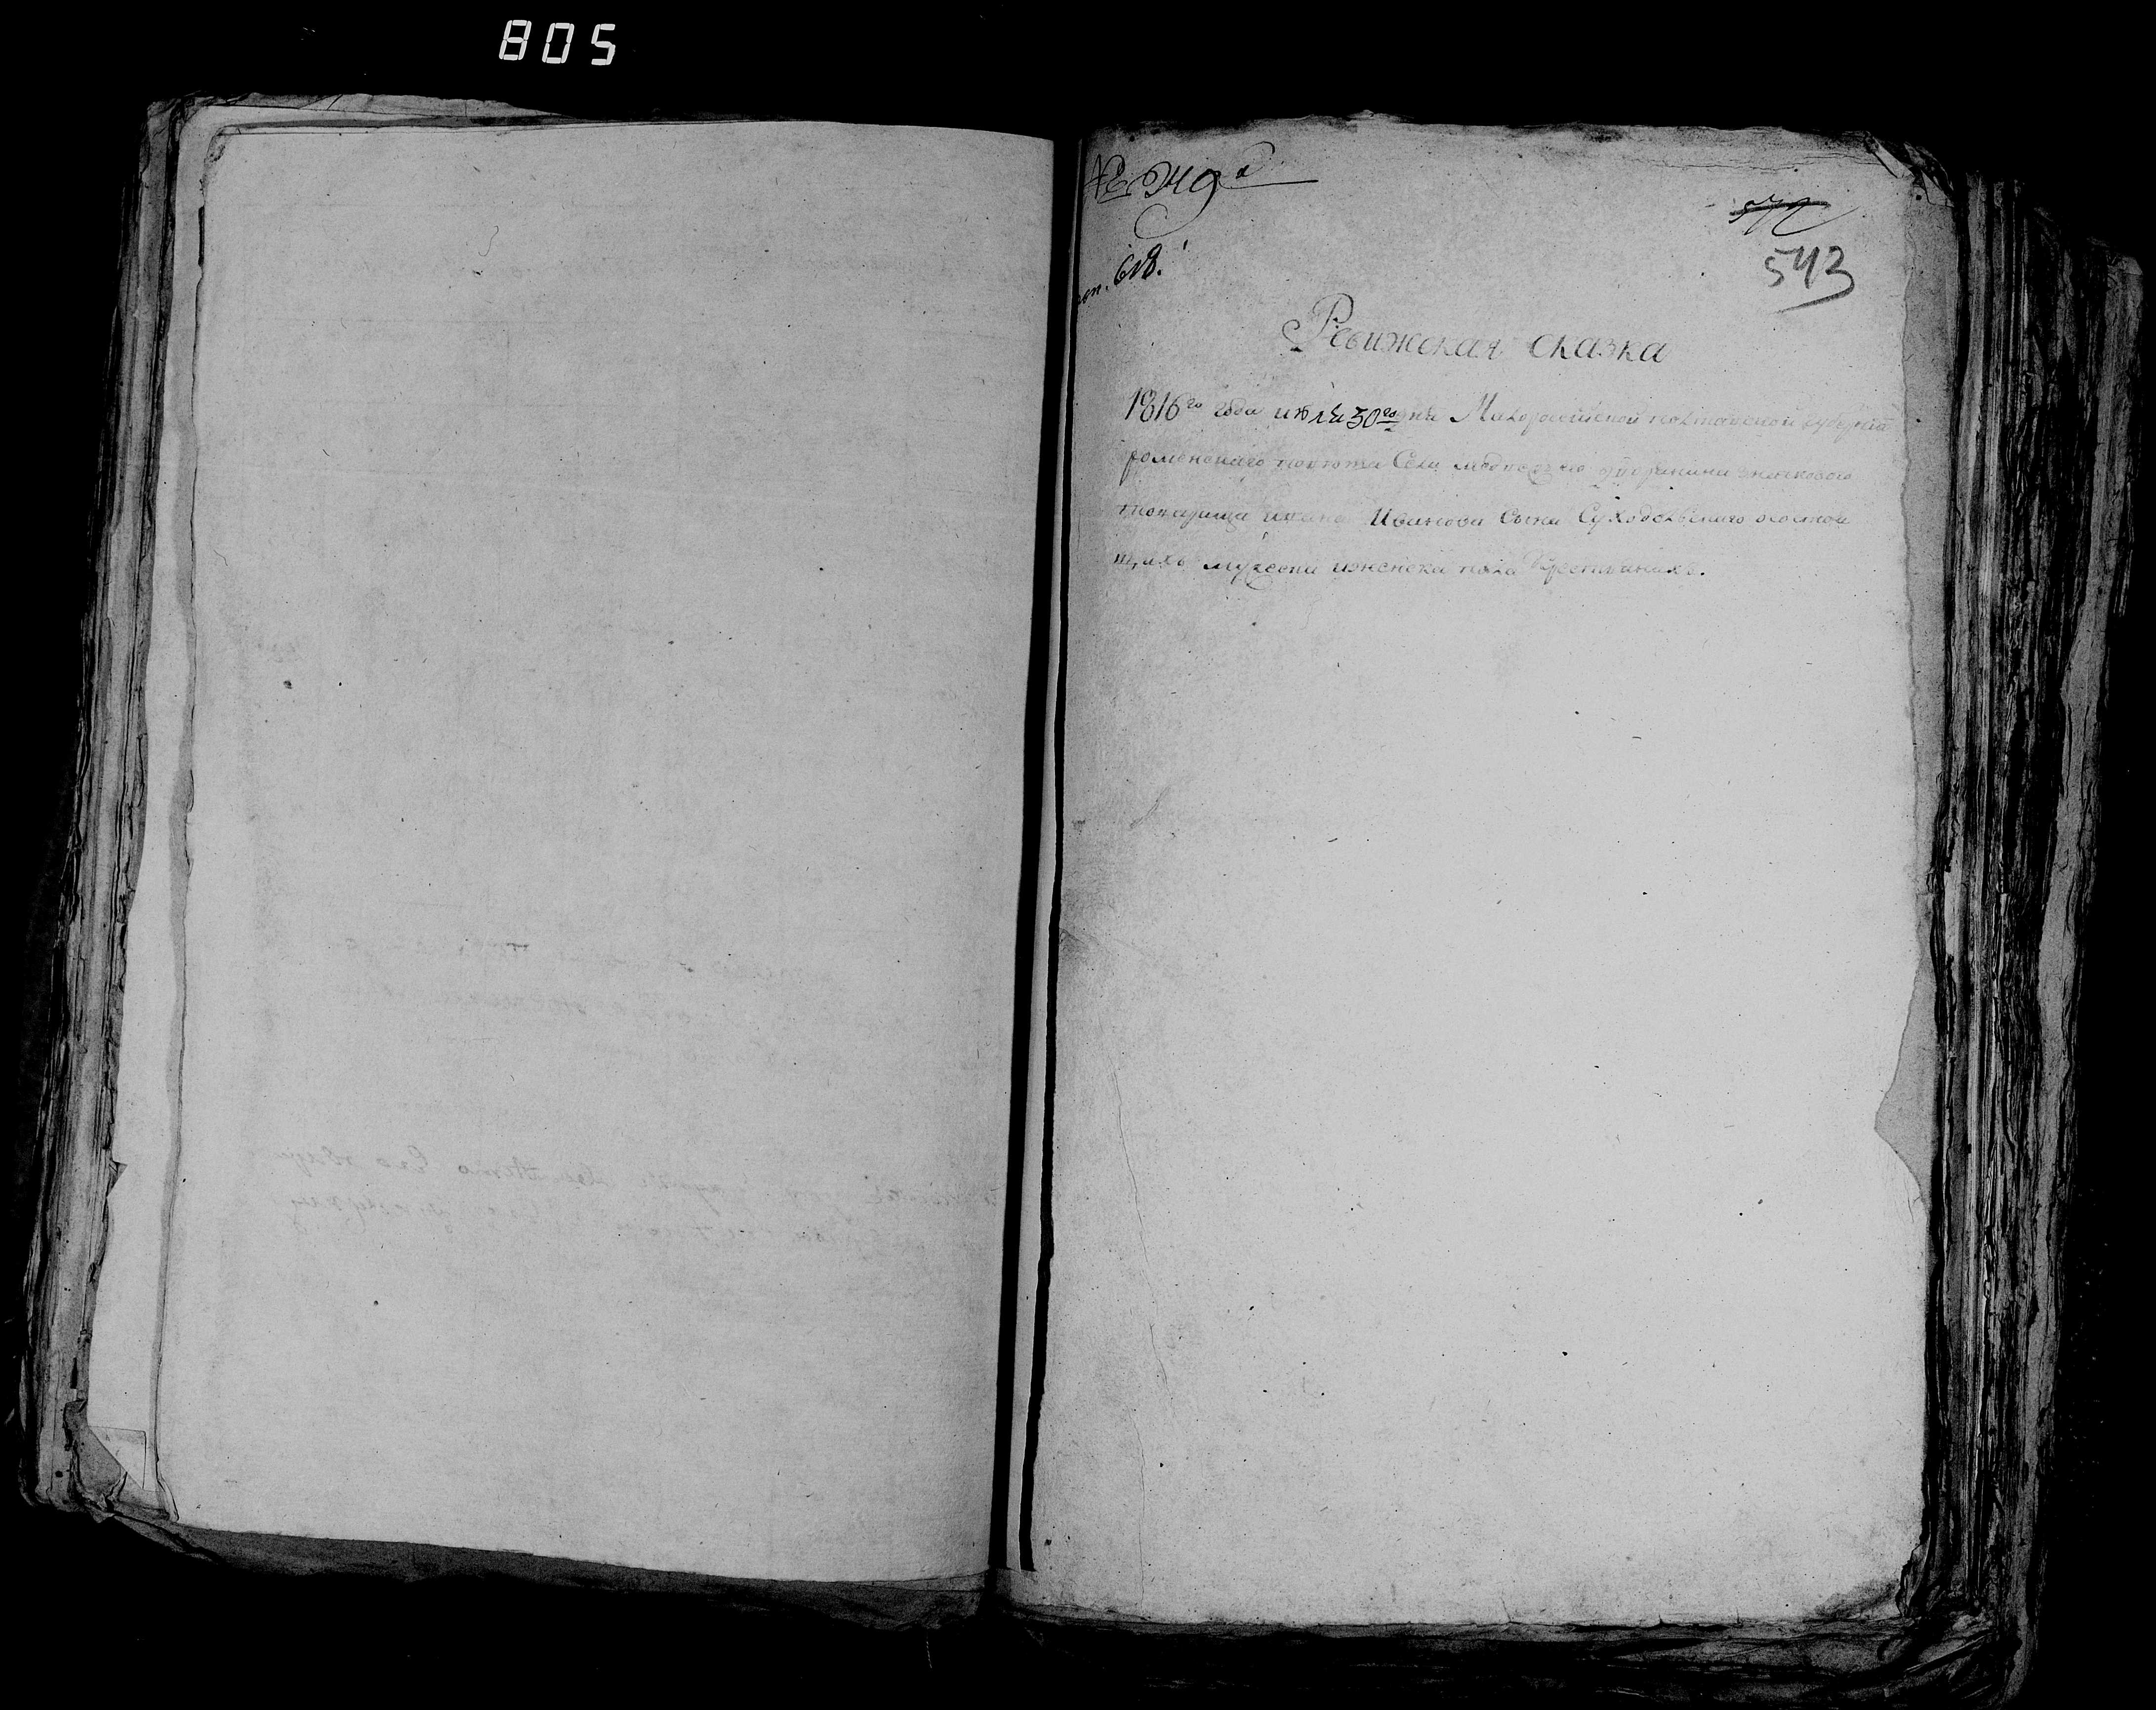 805
№ 349й
618.
572
543
Ревижская сказка
1816го года июля 30го дня Малороссийской полтавской губернии
роменского повета Села дворянина значкового
товарища ивана Иванова Сына Суходольского осостоя
щихъ мужеска иженска пола крестьянахъ.